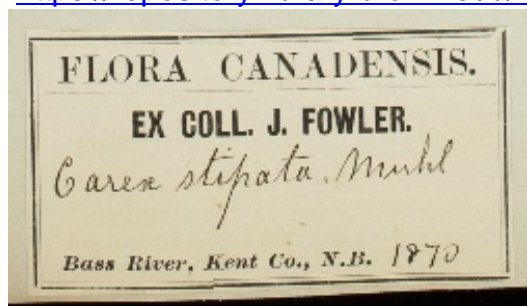 FLORA CANADENSIS.
EX COLL. J. FOWLER.
Carex stipata. Muhl
Bass River, Kent Co., N.B. 1870